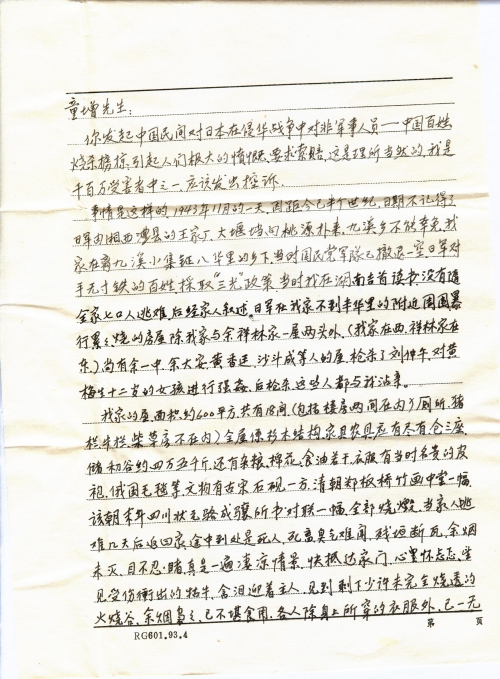 童增先生：
你发起中国民间对日本在侵华战争中对非军事人员一中国百姓
烧杀掳掠，引起人们极大的愤慨，要求索赔，这是理所当然的，我是
千百万受害者中之一应该发出控诉。
事情是这样的1943年11月的一天，因距今已半个世纪，日期不记得了
日军由湘西澧县的王家厂、大堰垱向桃源扑来，九溪乡不能幸免，我
家在离九溪小集镇八华里的乡下，当时国民党军队已撤退一空，日军对
手无寸铁的百姓採取“三光”政策，当时我在湖南吉首读书，没有随
全家七口人逃难，后经家人叙述，日军在我家不到半华里的附近周围暴
行累累，烧的房屋除我家与余祥林家一屋两头外，（我家在西，祥林家在
东）尚有余一中、余大家、黄香廷、沙斗成等人的屋，枪杀了刘仲午，对黄
梅生十二岁的女孩进行强奸，后枪杀，这些人都与我沾亲。
我家的屋，面积约600平方，共有18间，（包括楼房两间在内）厕所、猪
栏、牛栏、柴草房不在内）全屋傢杉木结构，家具农具，应有尽有，仓三座，
储初谷约四万五千斤，还有杂粮、棉花、食油若干，衣服有当时名贵的皮
袍，俄国毛毯等，文物有古宋石砚一方，清朝郑板桥竹画中堂一幅，
该朝末年四川状元骆成骧所书对联一幅，全部烧燬。当家人逃
难几天后返回家途中到处是死人，死禽臭气难闻，残垣断瓦，余烟
未灭，目不忍睹，真是一遍凄凉情景，快抵达家门，心里怀忐忑，坐
见受伤衝出的牯牛，含泪迎着主人，见到剩下少许未完全烧透的
火烧谷，余烟袅袅，已不堪食用，各人除身上所穿的衣服外，已一无
RG601.93.4
第 页